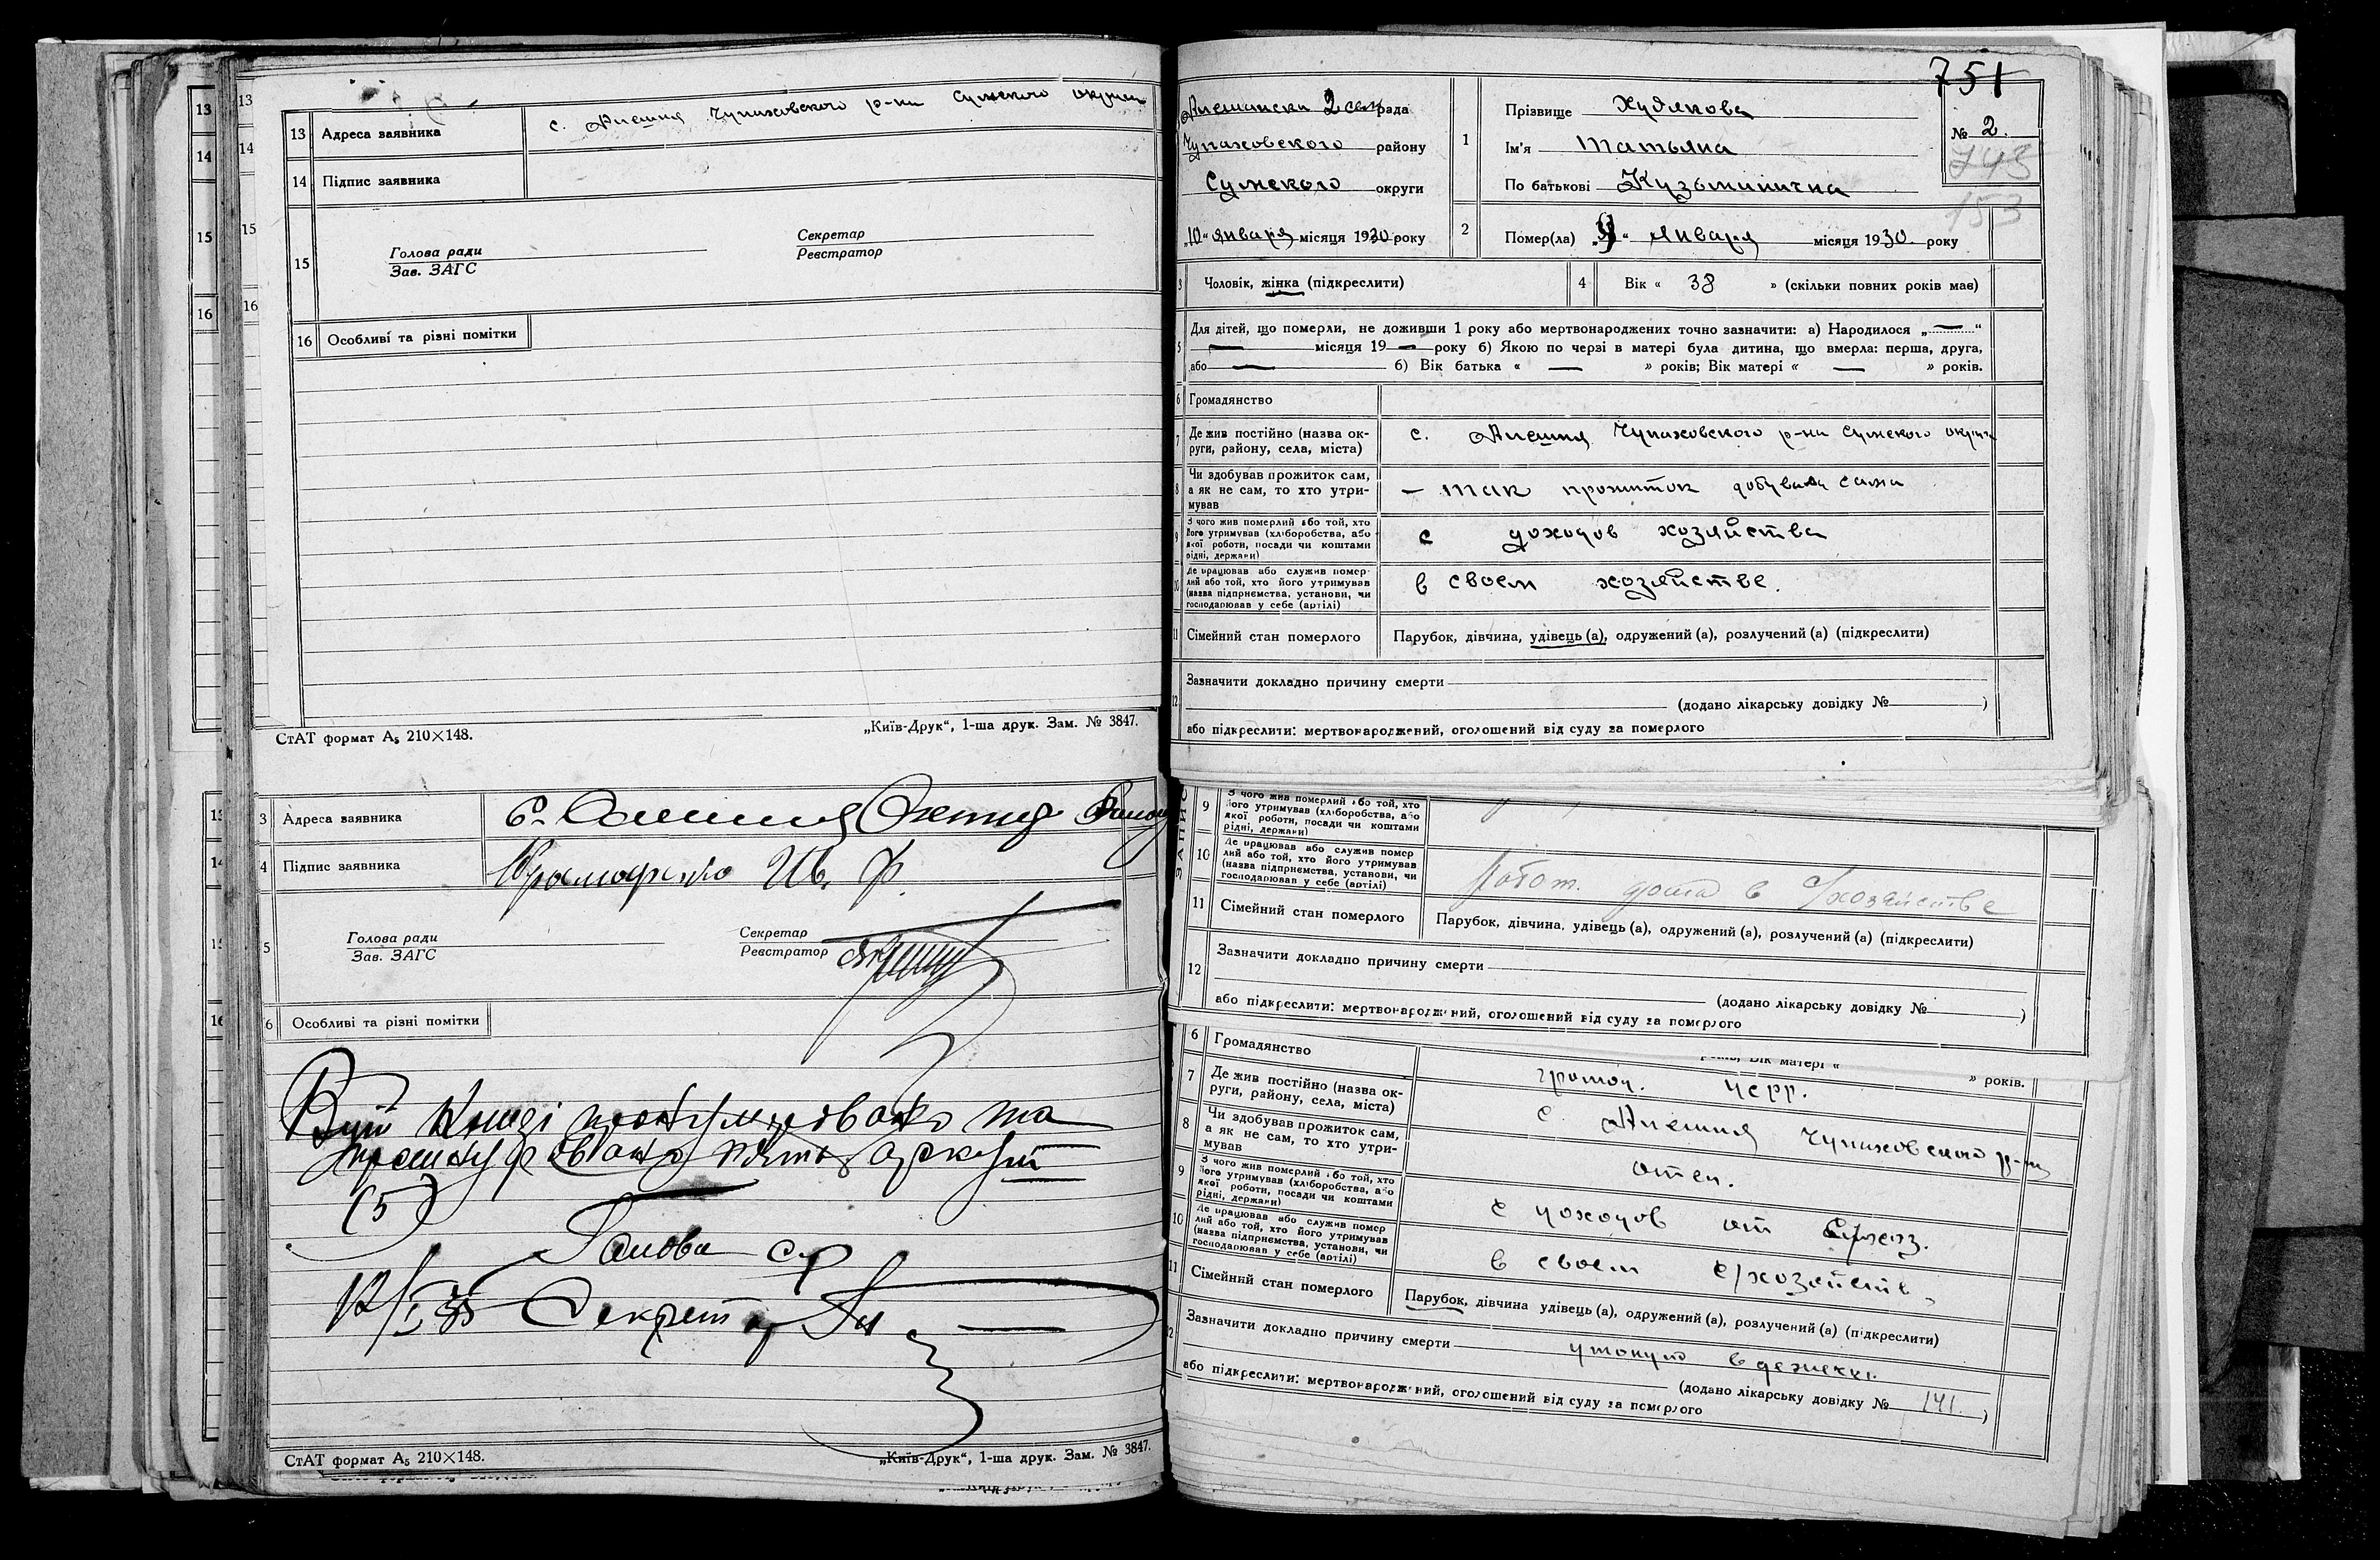 13
14
15
16
13
14
15
16
13 Адреса заявника с. Алешня Чупаховского р-на Сумского округи
14 Підпис заявника
15
Голова ради
Зав. ЗАГС
Секретар
Реєстратор
16 Особливі та різні помітки
СтАТ формат А₅ 210×148.
„Київ-Друк“, 1-ша друк. Зам. № 3847.
3 Адреса заявника
4 Підпис заявника Ив. Ф.
5
Голова ради
Зав. ЗАГС
Секретар
Реєстратор
6 Особливі та різні помітки
В цій книзі пронумеровано та
аркушів
(5)
Голова с/р
Секретар
СтАТ формат А₅ 210×148.
„Київ-Друк“, 1-ша друк. Зам. № 3847.
751
Алешански 2 сельрада
Чупаховского району
Сумского округи
„10“ января місяця 1930 року
1
Прізвище Худякова
Ім'я Татьяна
По батькові Кузьминична
№ 2.
743
153
2 Помер(ла) „9“ января місяця 1930. року
3 Чоловік, жінка (підкреслити)
4 Вік « 38 » (скільки повних років має)
5 Для дітей, що померли, не доживши 1 року або мертвонароджених точно зазначити: а) Народилося „—“
— місяця 19— року б) Якою по черзі в матері була дитина, що вмерла: перша, друга,
або — б) Вік батька « — » років; Вік матері « — » років.
6 Громадянство
7 Де жив постійно (назва округи, району, села, міста) с. Алешня Чупаховского р-на Сумского округи
8 Чи здобував прожиток сам, а як не сам, то хто утримував — так прожиток добувала сама
9 З чого жив померлий або той, хто його утримував (хліборобства, або якої роботи, посади чи коштами рідні, держави) с доходов хозяйства
10 Де працював або служив померлий або той, хто його утримував (назва підприємства, установи, чи господарював у себе (артілі) в своем хозяйстве.
11 Сімейний стан померлого Парубок, дівчина, удівець (а), одружений (а), розлучений (а) (підкреслити)
12 Зазначити докладно причину смерти
(додано лікарську довідку № )
або підкреслити: мертвонароджений, оголошений від суду за померлого
9 З чого жив померлий або той, хто його утримував (хліборобства, або якої роботи, посади чи коштами рідні, держави)
10 Де працював або служив померлий або той, хто його утримував (назва підприємства, установи, чи господарював у себе (артілі) Работ. дома в с/хозяйстве
11 Сімейний стан померлого Парубок, дівчина, удівець (а), одружений (а), розлучений (а) (підкреслити)
12 Зазначити докладно причину смерти
(додано лікарську довідку № )
або підкреслити: мертвонароджений, оголошений від суду за померлого
Вік матері « » років.
6 Громадянство громад. УССР.
7 Де жив постійно (назва округи, району, села, міста) с. Алешня Чупаховского р-на
8 Чи здобував прожиток сам, а як не сам, то хто утримував отец.
9 З чого жив померлий або той, хто його утримував (хліборобства, або якої роботи, посади чи коштами рідні, держави) с доходов от с/хоз.
10 Де працював або служив померлий або той, хто його утримував (назва підприємства, установи, чи господарював у себе (артілі) в своем с/хозяйств.
11 Сімейний стан померлого Парубок, дівчина удівець (а), одружений (а), розлучений (а) (підкреслити)
12 Зазначити докладно причину смерти утонул в
(додано лікарську довідку № 141. )
або підкреслити: мертвонароджений, оголошений від суду за померлого